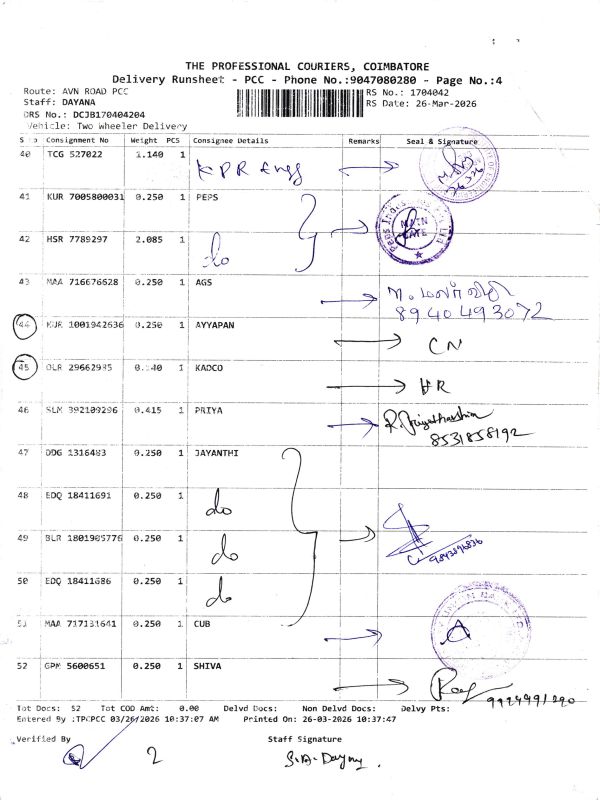 THE PROFESSIONAL COURIERS, COIMBATORE
Delivery Runsheet - PCC - Phone No.:9047080280 - Page No.:4
Route: AVN ROAD PCC
RS No.: 1704042
Staff: DAYANA
RS Date: 26-Mar-2026
DRS No.: DCJB170404204
Vehicle: Two Wheeler Delivery
S No Consignment No Weight PCS Consignee Details Remarks Seal & Signature
40 TCG 527022 1.140 1 KPR Engg
41 KUR 7005800031 0.250 1 PEPS
MAIN GATE
42 HSR 7789297 2.085 1 do
43 MAA 716676628 0.250 1 AGS
8940493072
44 KUR 1001942636 0.250 1 AYYAPAN CN
45 DLR 29662985 0.240 1 KADCO
46 SLM 392109296 0.415 1 PRIYA R. Priyatharshini
8531858192
47 DDG 1316483 0.250 1 JAYANTHI
48 EDQ 18411691 0.250 1 do
49 BLR 1801985776 0.250 1 do
50 EDQ 18411686 0.250 1 do
51 MAA 717131641 0.250 1 CUB
52 GPM 5600651 0.250 1 SHIVA
Tot Docs: 52 Tot COD Amt: 0.00 Delvd Docs: Non Delvd Docs: Delvy Pts:
Entered By :TPCPCC 03/26/2026 10:37:07 AM Printed On: 26-03-2026 10:37:47
Verified By Staff Signature
2